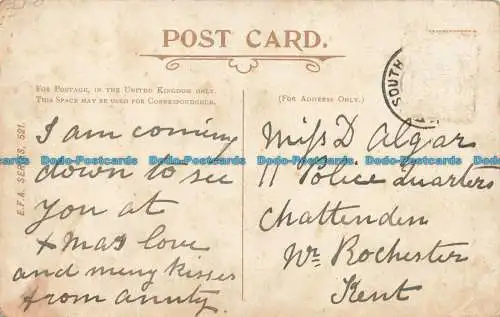 POST CARD.
FOR POSTAGE, IN THE UNITED KINGDOM ONLY,
THIS SPACE MAY BE USED FOR CORRESPONDENCE.
(FOR ADDRESS ONLY.)
SOUTH
E.F.A. SERIES, 521.
I am coming
down to see
you at
Xmas love
and meny kisses
from aunty.
Miss D Algar
11 Police Quarters
Chattenden
Nr. Rochester
Kent
Dodo-Postcards Dodo-Postcards Dodo-Postcards Dodo-Postcards Dodo-Postcards